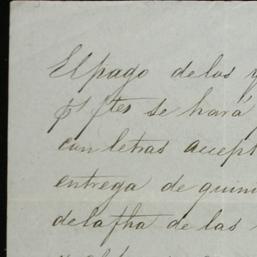 El pago de los
p.ª ftes se hará
con letras accept
entrega de quin
de la fha de las